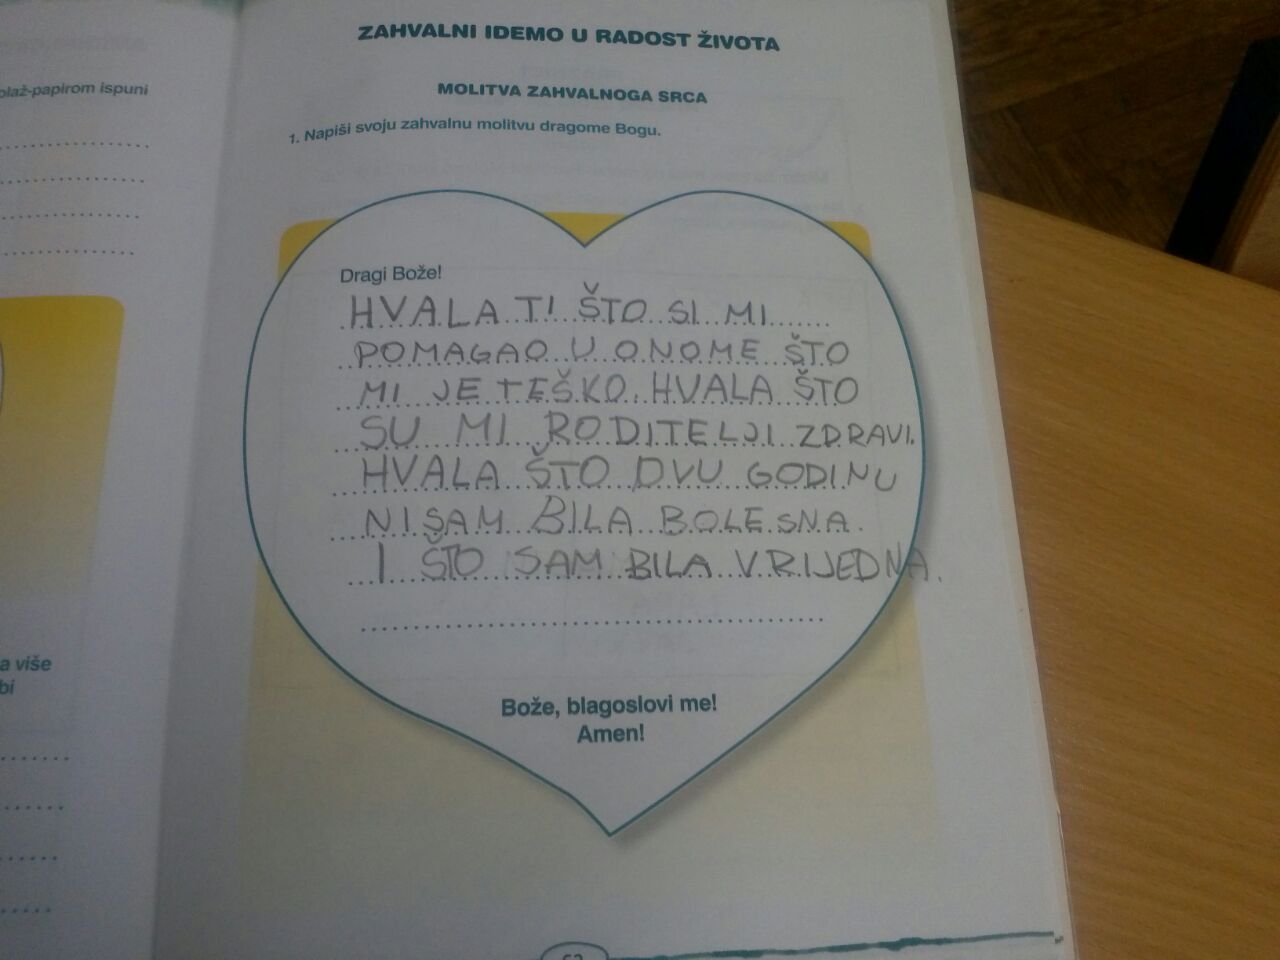 olaž-papirom ispuni
a više
bi
ZAHVALNI IDEMO U RADOST ŽIVOTA
MOLITVA ZAHVALNOGA SRCA
1. Napiši svoju zahvalnu molitvu dragome Bogu.
Dragi Bože!
HVALA TI ŠTO SI MI
POMAGAO U ONOME ŠTO
MI JE TEŠKO. HVALA ŠTO
SU MI RODITELJI ZDRAVI.
HVALA ŠTO OVU GODINU
NISAM BILA BOLESNA.
I ŠTO SAM BILA VRIJEDNA.
Bože, blagoslovi me!
Amen!